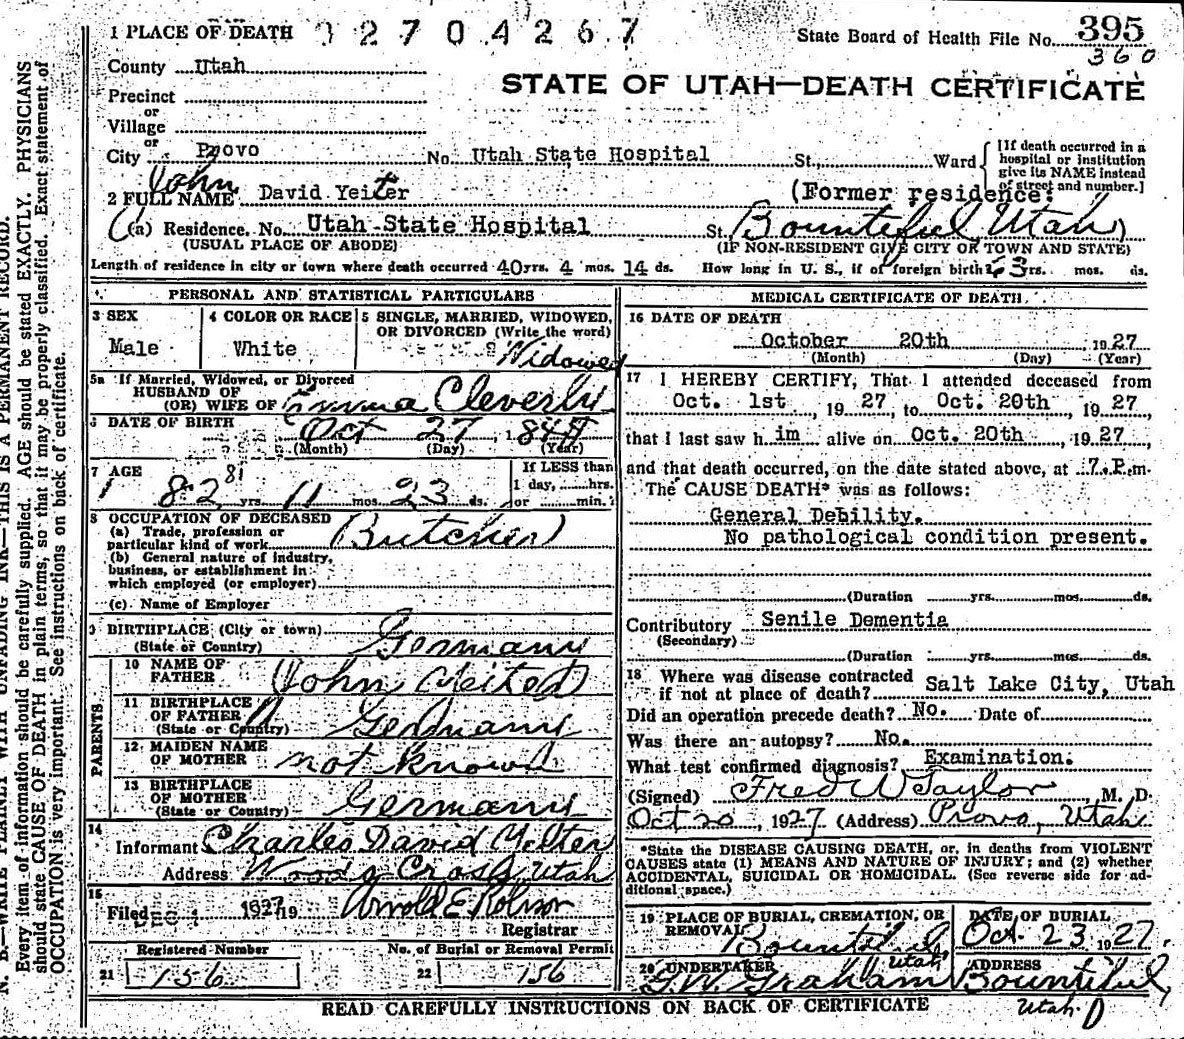 1 PLACE OF DEATH
2704267
State Board of Health File No. 395
360
County Utah
STATE OF UTAH—DEATH CERTIFICATE
Precinct
or
Village
or
City Provo No. Utah State Hospital St., Ward
[If death occurred in a
hospital or institution
give its NAME instead
of street and number.]
John
2 FULL NAME David Yeiter (Former residence:
(a) Residence. No. Utah State Hospital St. Bountiful, Utah)
(USUAL PLACE OF ABODE) (IF NON-RESIDENT GIVE CITY OR TOWN AND STATE)
Length of residence in city or town where death occurred 40 yrs. 4 mos. 14 ds. How long in U. S., if of foreign birth? 3 yrs. mos. ds.
PERSONAL AND STATISTICAL PARTICULARS
3 SEX
Male
4 COLOR OR RACE
White
5 SINGLE, MARRIED, WIDOWED,
OR DIVORCED (Write the word)
Widowed
5a If Married, Widowed, or Divorced
HUSBAND OF
(OR) WIFE OF Emma Cleverly
6 DATE OF BIRTH
Oct 27, 184
(Month) (Day) (Year)
7 AGE
81
82 yrs. 11 mos. 23 ds.
If LESS than
1 day, hrs.
or min.
8 OCCUPATION OF DECEASED
(a) Trade, profession or
particular kind of work Butcher
(b) General nature of industry,
business, or establishment in
which employed (or employer)
(c) Name of Employer
9 BIRTHPLACE (City or town)
(State or Country) Germany
PARENTS
10 NAME OF
FATHER John Yeiter
11 BIRTHPLACE
OF FATHER
(State or Country) Germany
12 MAIDEN NAME
OF MOTHER not known
13 BIRTHPLACE
OF MOTHER
(State or Country) Germany
14
Informant Charles David Yeiter
Address Woods Cross, Utah
15
Filed 1927 19 Arnold E Robison
Registrar
Registered Number No. of Burial or Removal Permit
21 156 22 156
MEDICAL CERTIFICATE OF DEATH
16 DATE OF DEATH
October 20th 1927
(Month) (Day) (Year)
17 I HEREBY CERTIFY, That I attended deceased from
Oct. 1st, 1927, to Oct. 20th, 1927
that I last saw him alive on Oct. 20th, 1927,
and that death occurred, on the date stated above, at 7.P.m.
The CAUSE DEATH* was as follows:
General Debility.
No pathological condition present.
(Duration yrs. mos. ds.
Contributory Senile Dementia
(Secondary)
(Duration yrs. mos. ds.
18 Where was disease contracted
if not at place of death? Salt Lake City, Utah
Did an operation precede death? No. Date of
Was there an autopsy? No.
What test confirmed diagnosis? Examination.
(Signed) Fred W Taylor M. D.
Oct 20, 1927 (Address) Provo, Utah.
*State the DISEASE CAUSING DEATH, or, in deaths from VIOLENT
CAUSES state (1) MEANS AND NATURE OF INJURY; and (2) whether
ACCIDENTAL, SUICIDAL OR HOMICIDAL. (See reverse side for ad-
ditional space.)
19 PLACE OF BURIAL, CREMATION, OR
REMOVAL Bountiful, Utah
DATE OF BURIAL
Oct. 23 1927.
20 UNDERTAKER
G.W. Graham
ADDRESS
Bountiful,
Utah.
READ CAREFULLY INSTRUCTIONS ON BACK OF CERTIFICATE
N. B.—WRITE PLAINLY WITH UNFADING INK—THIS IS A PERMANENT RECORD.
Every item of information should be carefully supplied. AGE should be stated EXACTLY. PHYSICIANS
should state CAUSE OF DEATH in plain terms, so that it may be properly classified. Exact statement of
OCCUPATION is very important. See instructions on back of certificate.